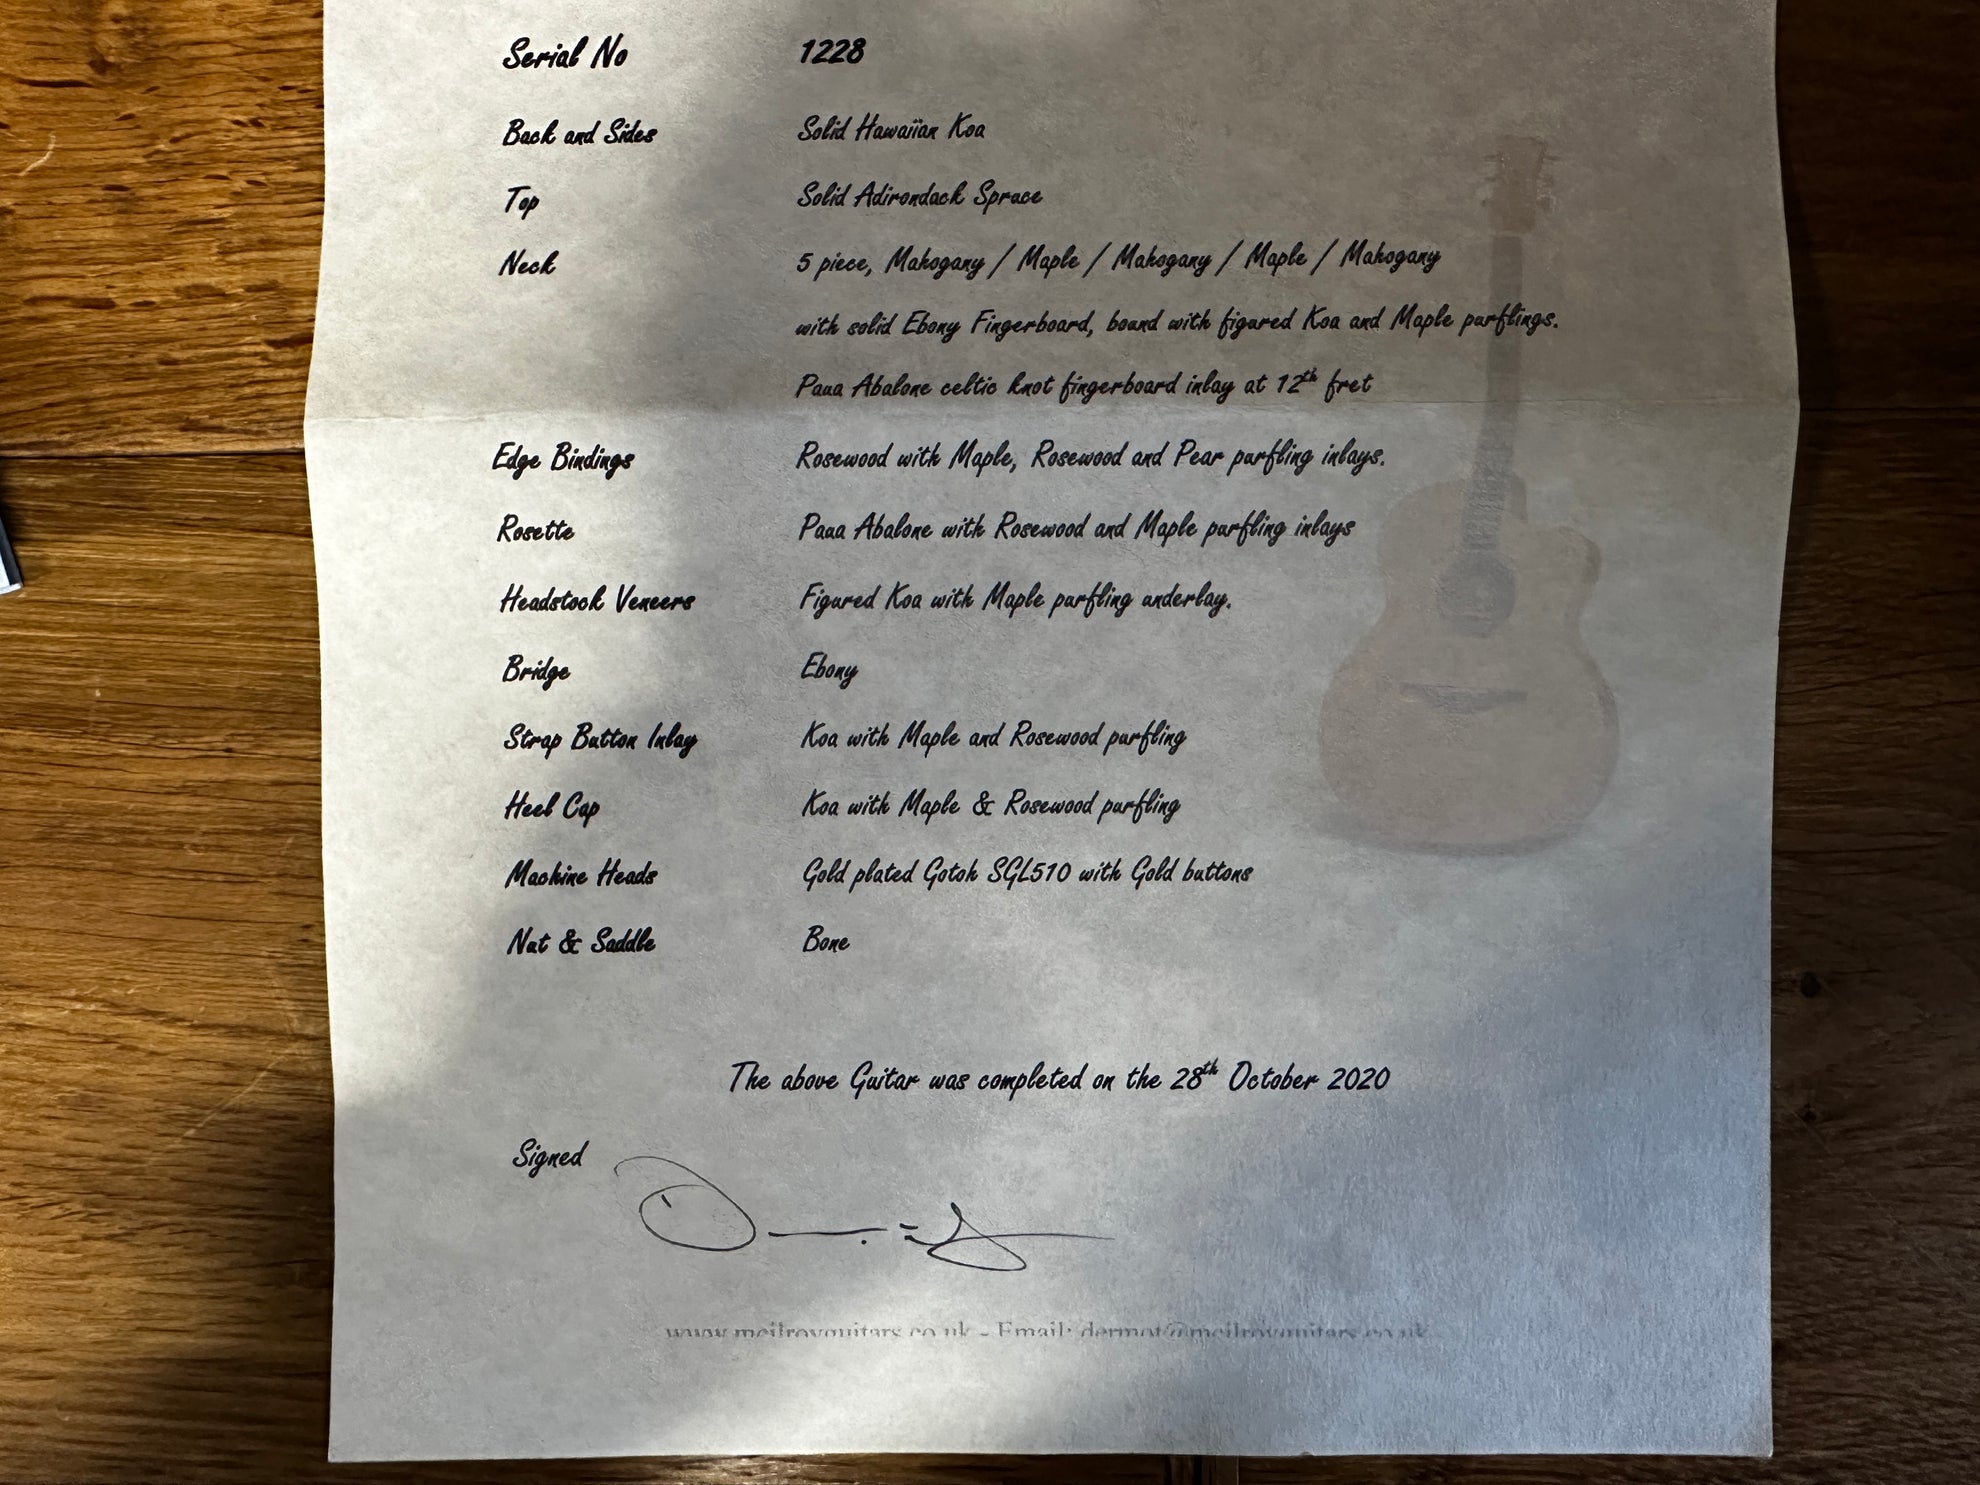 Serial No 1228
Back and Sides Solid Hawaiian Koa
Top Solid Adirondack Spruce
Neck 5 piece, Mahogany / Maple / Mahogany / Maple / Mahogany
with solid Ebony Fingerboard, bound with figured Koa and Maple purflings.
Paua Abalone celtic knot fingerboard inlay at 12th fret
Edge Bindings Rosewood with Maple, Rosewood and Pear purfling inlays.
Rosette Paua Abalone with Rosewood and Maple purfling inlays
Headstock Veneers Figured Koa with Maple purfling underlay.
Bridge Ebony
Strap Button Inlay Koa with Maple and Rosewood purfling
Heel Cap Koa with Maple & Rosewood purfling
Machine Heads Gold plated Gotoh SGL510 with Gold buttons
Nut & Saddle Bone
The above Guitar was completed on the 28th October 2020
Signed
www.mcilroyguitars.co.uk - Email: dermot@mcilroyguitars.co.uk